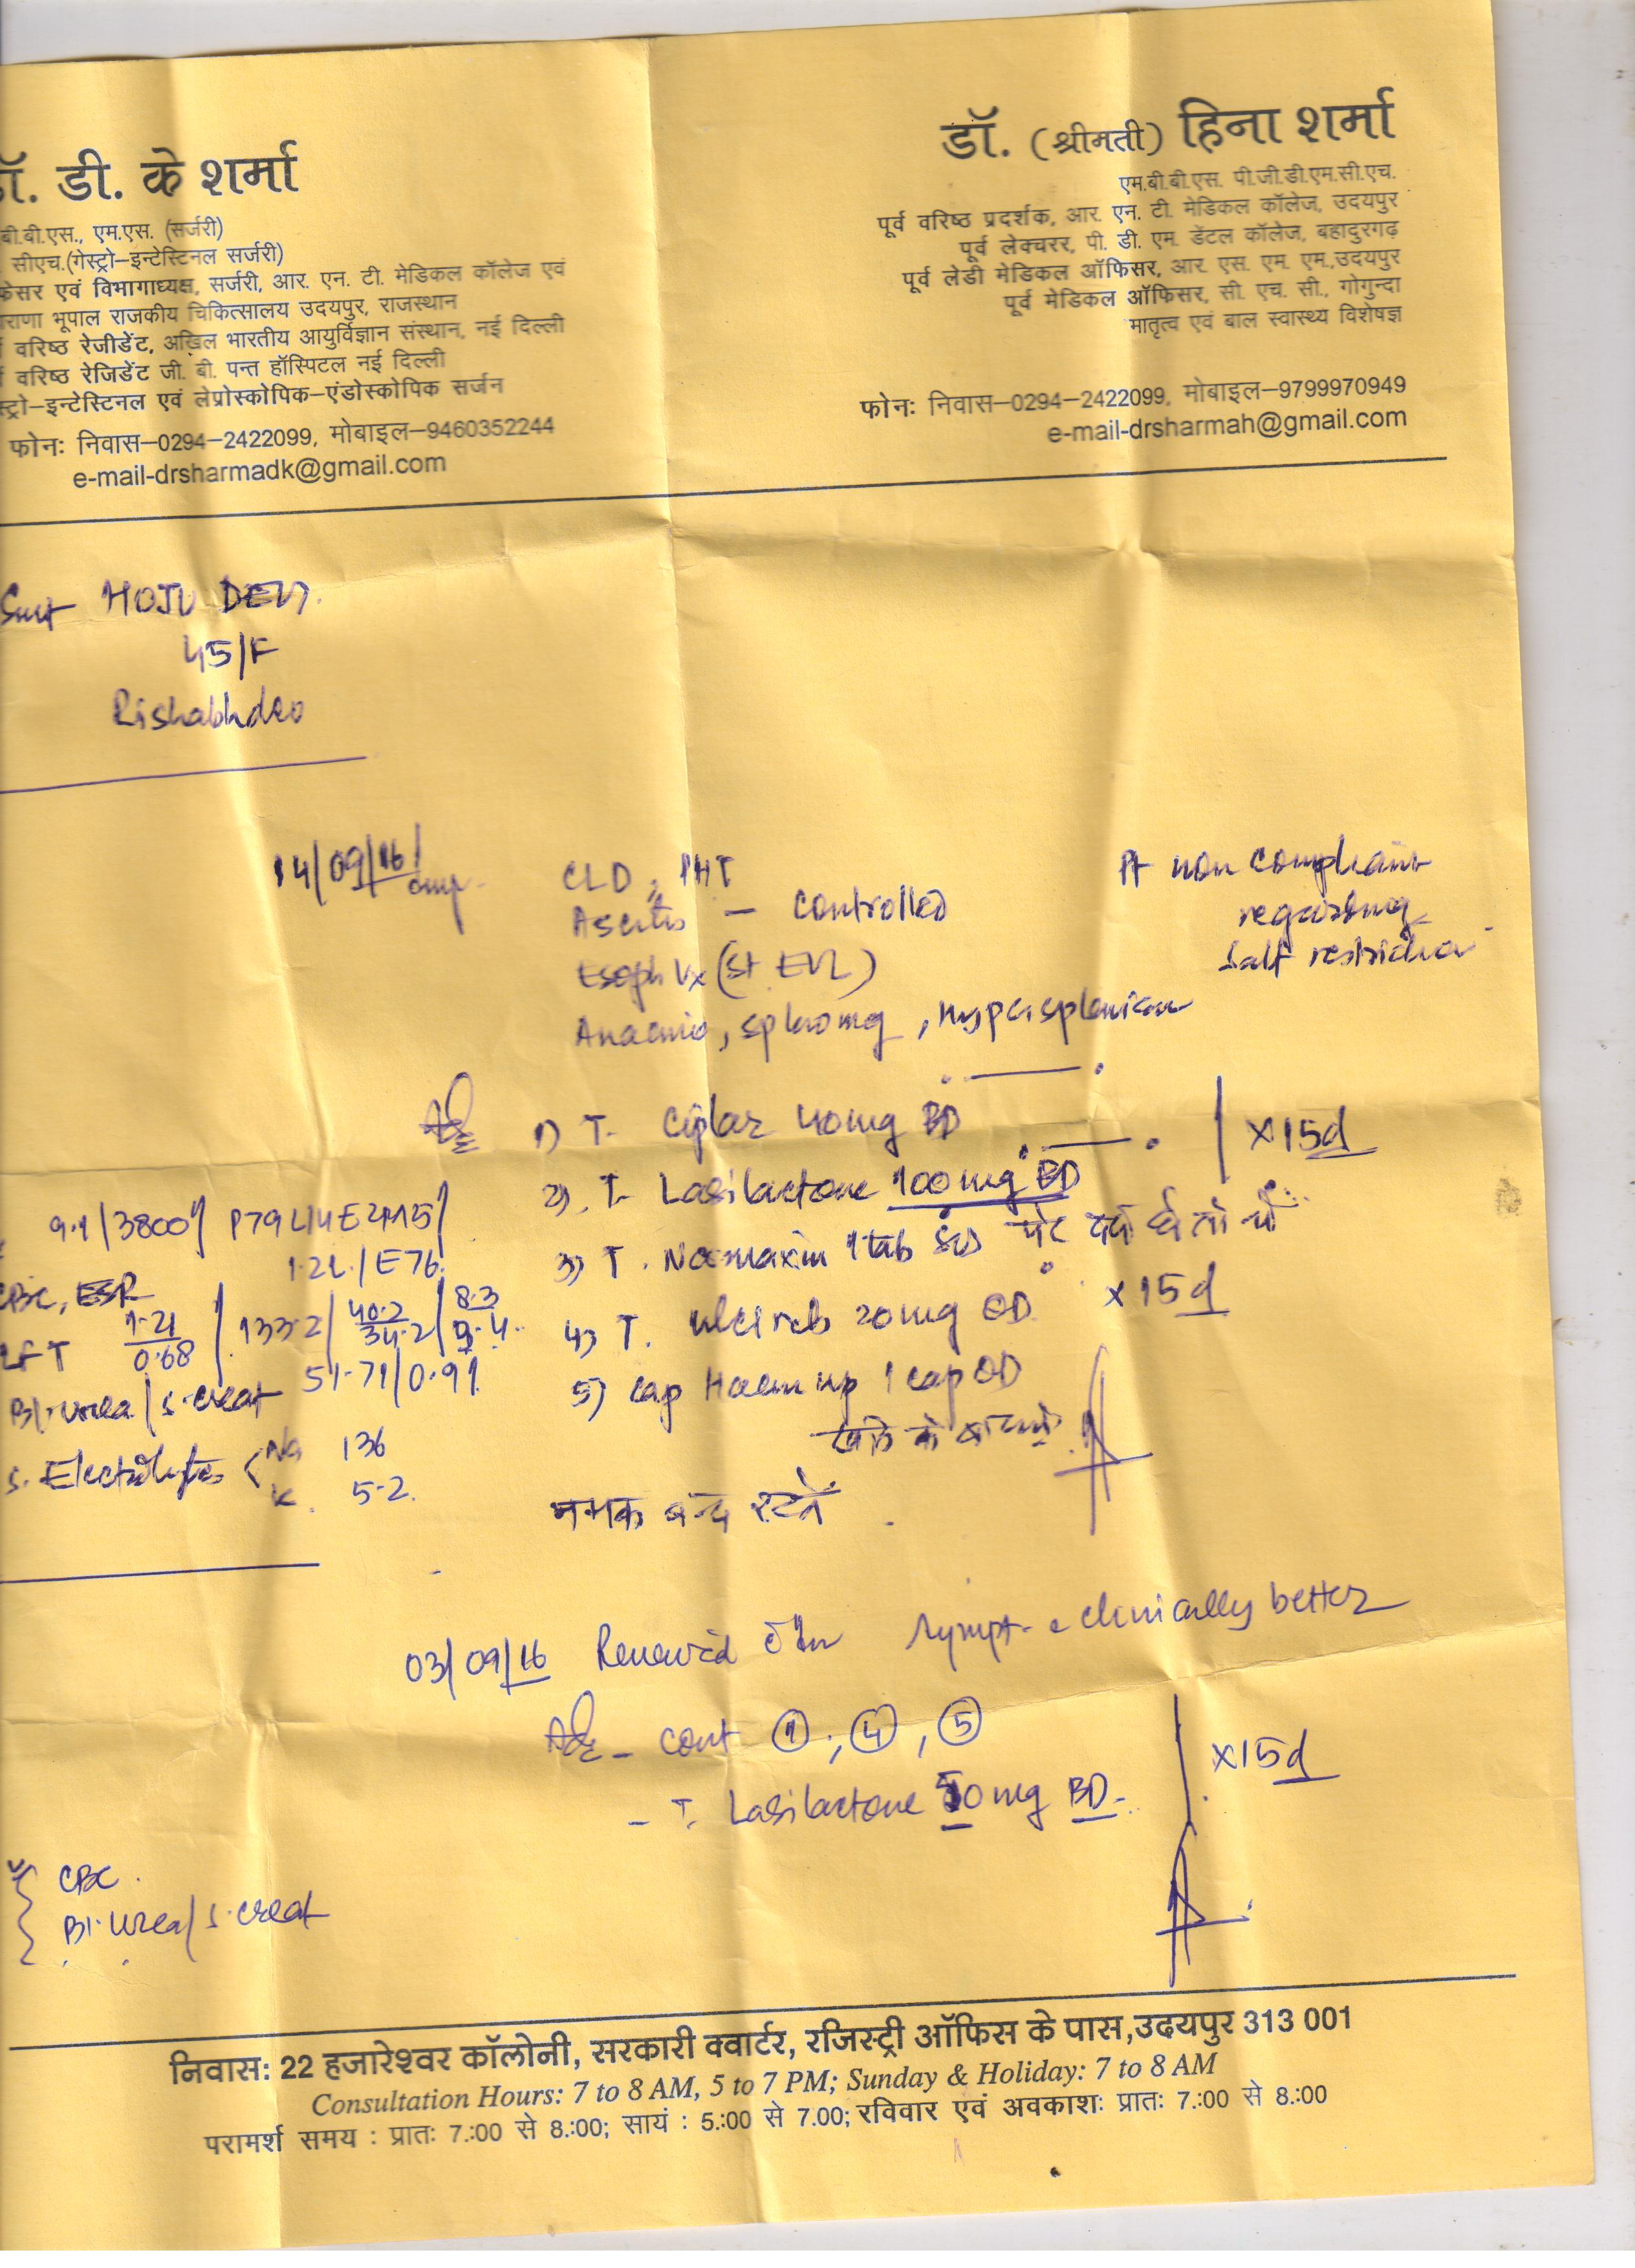 डॉ. डी. के शर्मा
बी.बी.एस., एम.एस. (सर्जरी)
सीएच.(गेस्ट्रो–इन्टेस्टिनल सर्जरी)
फेसर एवं विभागाध्यक्ष, सर्जरी, आर. एन. टी. मेडिकल कॉलेज एवं
राणा भूपाल राजकीय चिकित्सालय उदयपुर, राजस्थान
वरिष्ठ रेजीडेंट, अखिल भारतीय आयुर्विज्ञान संस्थान, नई दिल्ली
वरिष्ठ रेजिडेंट जी. बी. पन्त हॉस्पिटल नई दिल्ली
स्ट्रो–इन्टेस्टिनल एवं लेप्रोस्कोपिक–एंडोस्कोपिक सर्जन
फोनः निवास–0294–2422099, मोबाइल–9460352244
e-mail-drsharmadk@gmail.com
डॉ. (श्रीमती) हिना शर्मा
एम.बी.बी.एस. पी.जी.डी.एम.सी.एच.
पूर्व वरिष्ठ प्रदर्शक, आर. एन. टी. मेडिकल कॉलेज, उदयपुर
पूर्व लेक्चरर, पी. डी. एम. डेंटल कॉलेज, बहादुरगढ़
पूर्व लेडी मेडिकल ऑफिसर, आर. एस. एम. एम.,उदयपुर
पूर्व मेडिकल ऑफिसर, सी. एच. सी., गोगुन्दा
मातृत्व एवं बाल स्वास्थ्य विशेषज्ञ
फोनः निवास–0294–2422099, मोबाइल–9799970949
e-mail-drsharmah@gmail.com
Smt HOJU DEVI
45/F
Rishabhdeo
14/09/16
CLD, PHT
Ascites – controlled
Esoph Vx (St EVL)
Anaemia, splnomg, Hypersplenism
Pt non compliant
regarding
salt restriction
Adv 1) T. Ciplar 40mg BD
2) T. Lasilactone 100mg BD
x15d
3) T. Normaxin 1 tab SOS पेट दर्द
4) T. 20mg OD x15d
5) Cap Haem up 1 cap OD
खाने के बाद
नमक बन्द
9.1/3800/ P79L14E2M5/
1.2L/E76
CBC, ESR
LFT 1.21/0.68 / 133.2/ 40.2/34.2/ 8.3
Bl. urea/s.creat 51.71/0.91
S. Electrolytes Na 136
K 5.2
03/09/16 Sympt. clinically better
Adv – cont ①, ④, ⑤
– T. Lasilactone 50mg BD
x15d
CBC
Bl. Urea/s.creat
निवासः 22 हजारेश्वर कॉलोनी, सरकारी क्वार्टर, रजिस्ट्री ऑफिस के पास,उदयपुर 313 001
Consultation Hours: 7 to 8 AM, 5 to 7 PM; Sunday & Holiday: 7 to 8 AM
परामर्श समय : प्रातः 7.:00 से 8.:00; सायं : 5.:00 से 7.00; रविवार एवं अवकाशः प्रातः 7.:00 से 8.:00